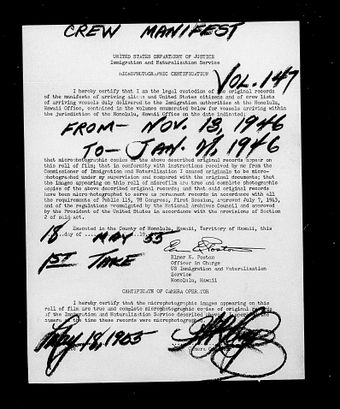 CREW MANIFEST
UNITED STATES DEPARTMENT OF JUSTICE
Immigration and Naturalization Service
MICROPHOTOGRAPHIC CERTIFICATION
VOL. 147
I hereby certify that I am the legal custodian of the original records
of the manifests of arriving aliens and United States citizens and of crew lists
of arriving vessels duly delivered to the Immigration authorities at the Honolulu,
Hawaii Office, contained in the volumes enumerated below for vessels arriving within
the jurisdiction of the Honolulu, Hawaii Office on the date indicated:
FROM- NOV. 13, 1946
TO- JAN. 1946
that microphotographic copies of the above described original records appear on
this roll of film; that in conformity with instructions received by me from the
Commissioner of Immigration and Naturalization I caused originals to be micro-
photographed under my supervision and compared with the original documents; that
the images appearing on this roll of microfilm are true and complete photographic
copies of the above described original records; and that said original records
have been microphotographed to serve as permanent records in accordance with all
the requirements of Public 115, 78 Congress, First Session, approved July 7, 1943,
and of the regulations promulgated by the National Archives Council and approved
by the President of the United States in accordance with the provisions of Section
2 of said act.
Executed in the County of Honolulu, Hawaii, Territory of Hawaii, this
18 day of MAY 19 55
1ST TAKE
Elmer E. Poston
Officer in Charge
US Immigration and Naturalization
Service
Honolulu, Hawaii
CERTIFICATE OF CAMERA OPERATOR
I hereby certify that the microphotographic images appearing on this
roll of film are true and complete microphotographic copies of original
of the Immigration and Naturalization Service described
camera at the time these records were microphotographed
May 18, 1955